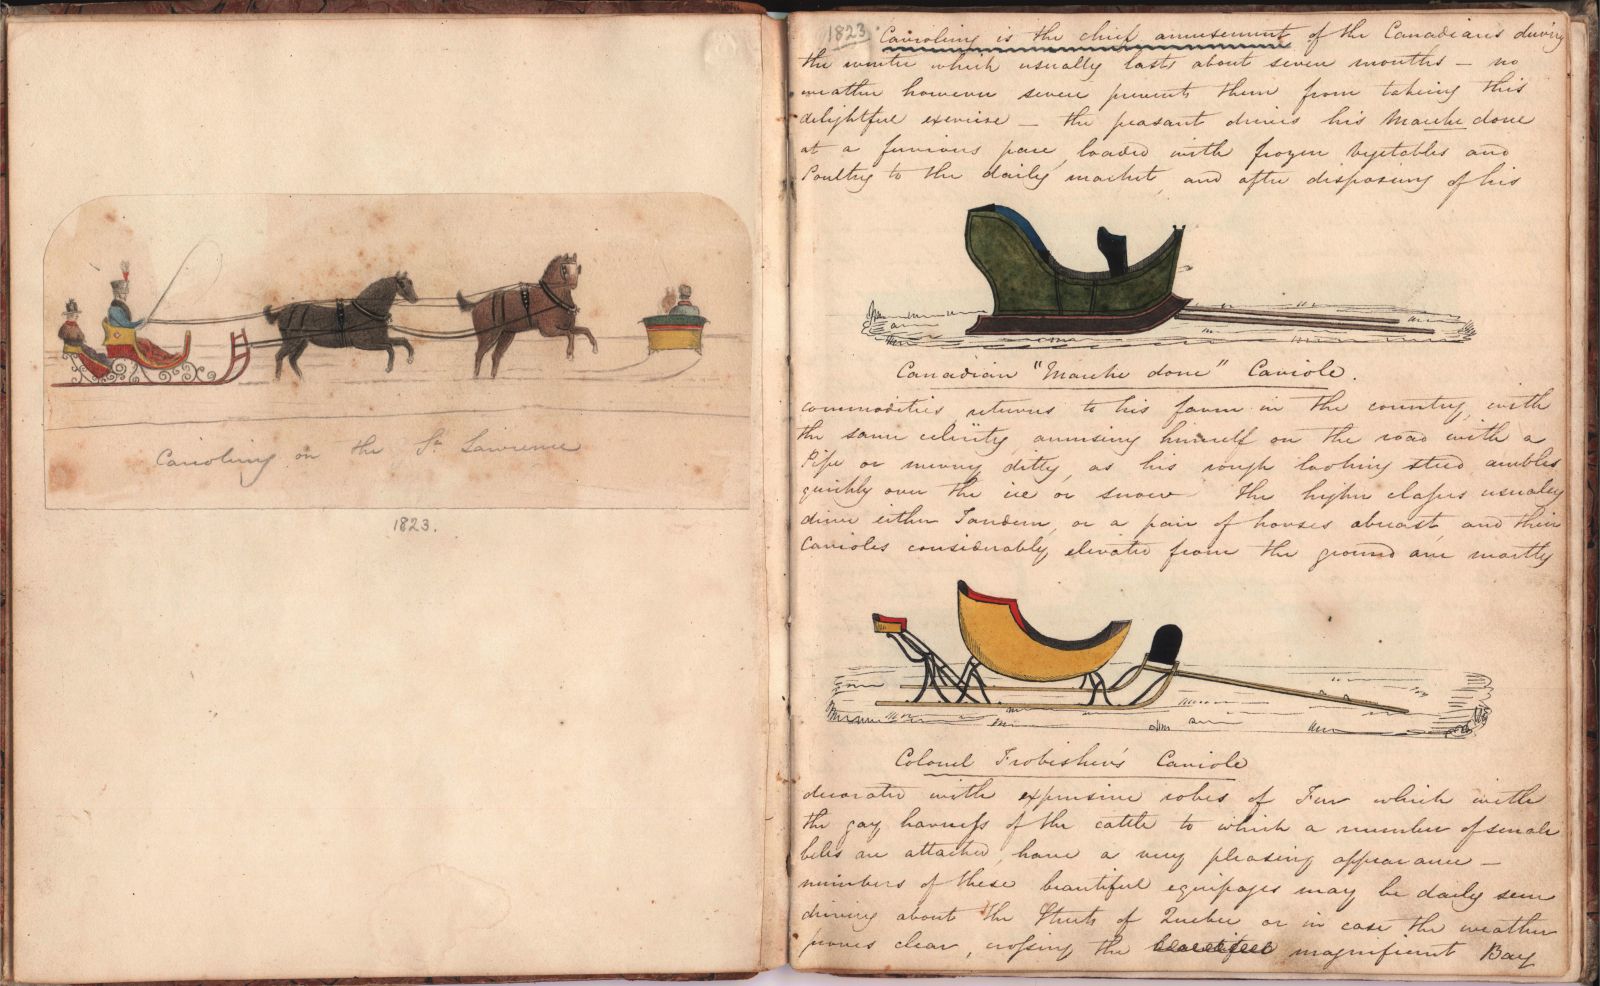 Carioling on the St. Lawrence
1823.
1823. Carioling is the chief amusement of the Canadians during
the winter which usually lasts about seven months – no
weather however severe prevents them from taking this
delightful exercise – the peasant drives his Marche donc
at a furious pace, loaded with frozen Vegetables and
Poultry to the daily market, and after disposing of his
Canadian "Marche donc" Cariole.
commodities returns to his farm in the country, with
the same celerity, amusing himself on the road with a
Pipe or merry ditty, as his rough looking steed ambles
quickly over the ice or snow – The higher classes usually
drive either Tandem, or a pair of horses abreast and their
Carioles considerably elevated from the ground are mostly
Colonel Frobisher's Cariole
decorated with expensive robes of Fur which with
the gay harness of the cattle to which a number of small
bells are attached, have a very pleasing appearance –
numbers of these beautiful equipages may be daily seen
driving about the Streets of Quebec or in case the weather
proves clear, crossing the beautiful magnificent Bay